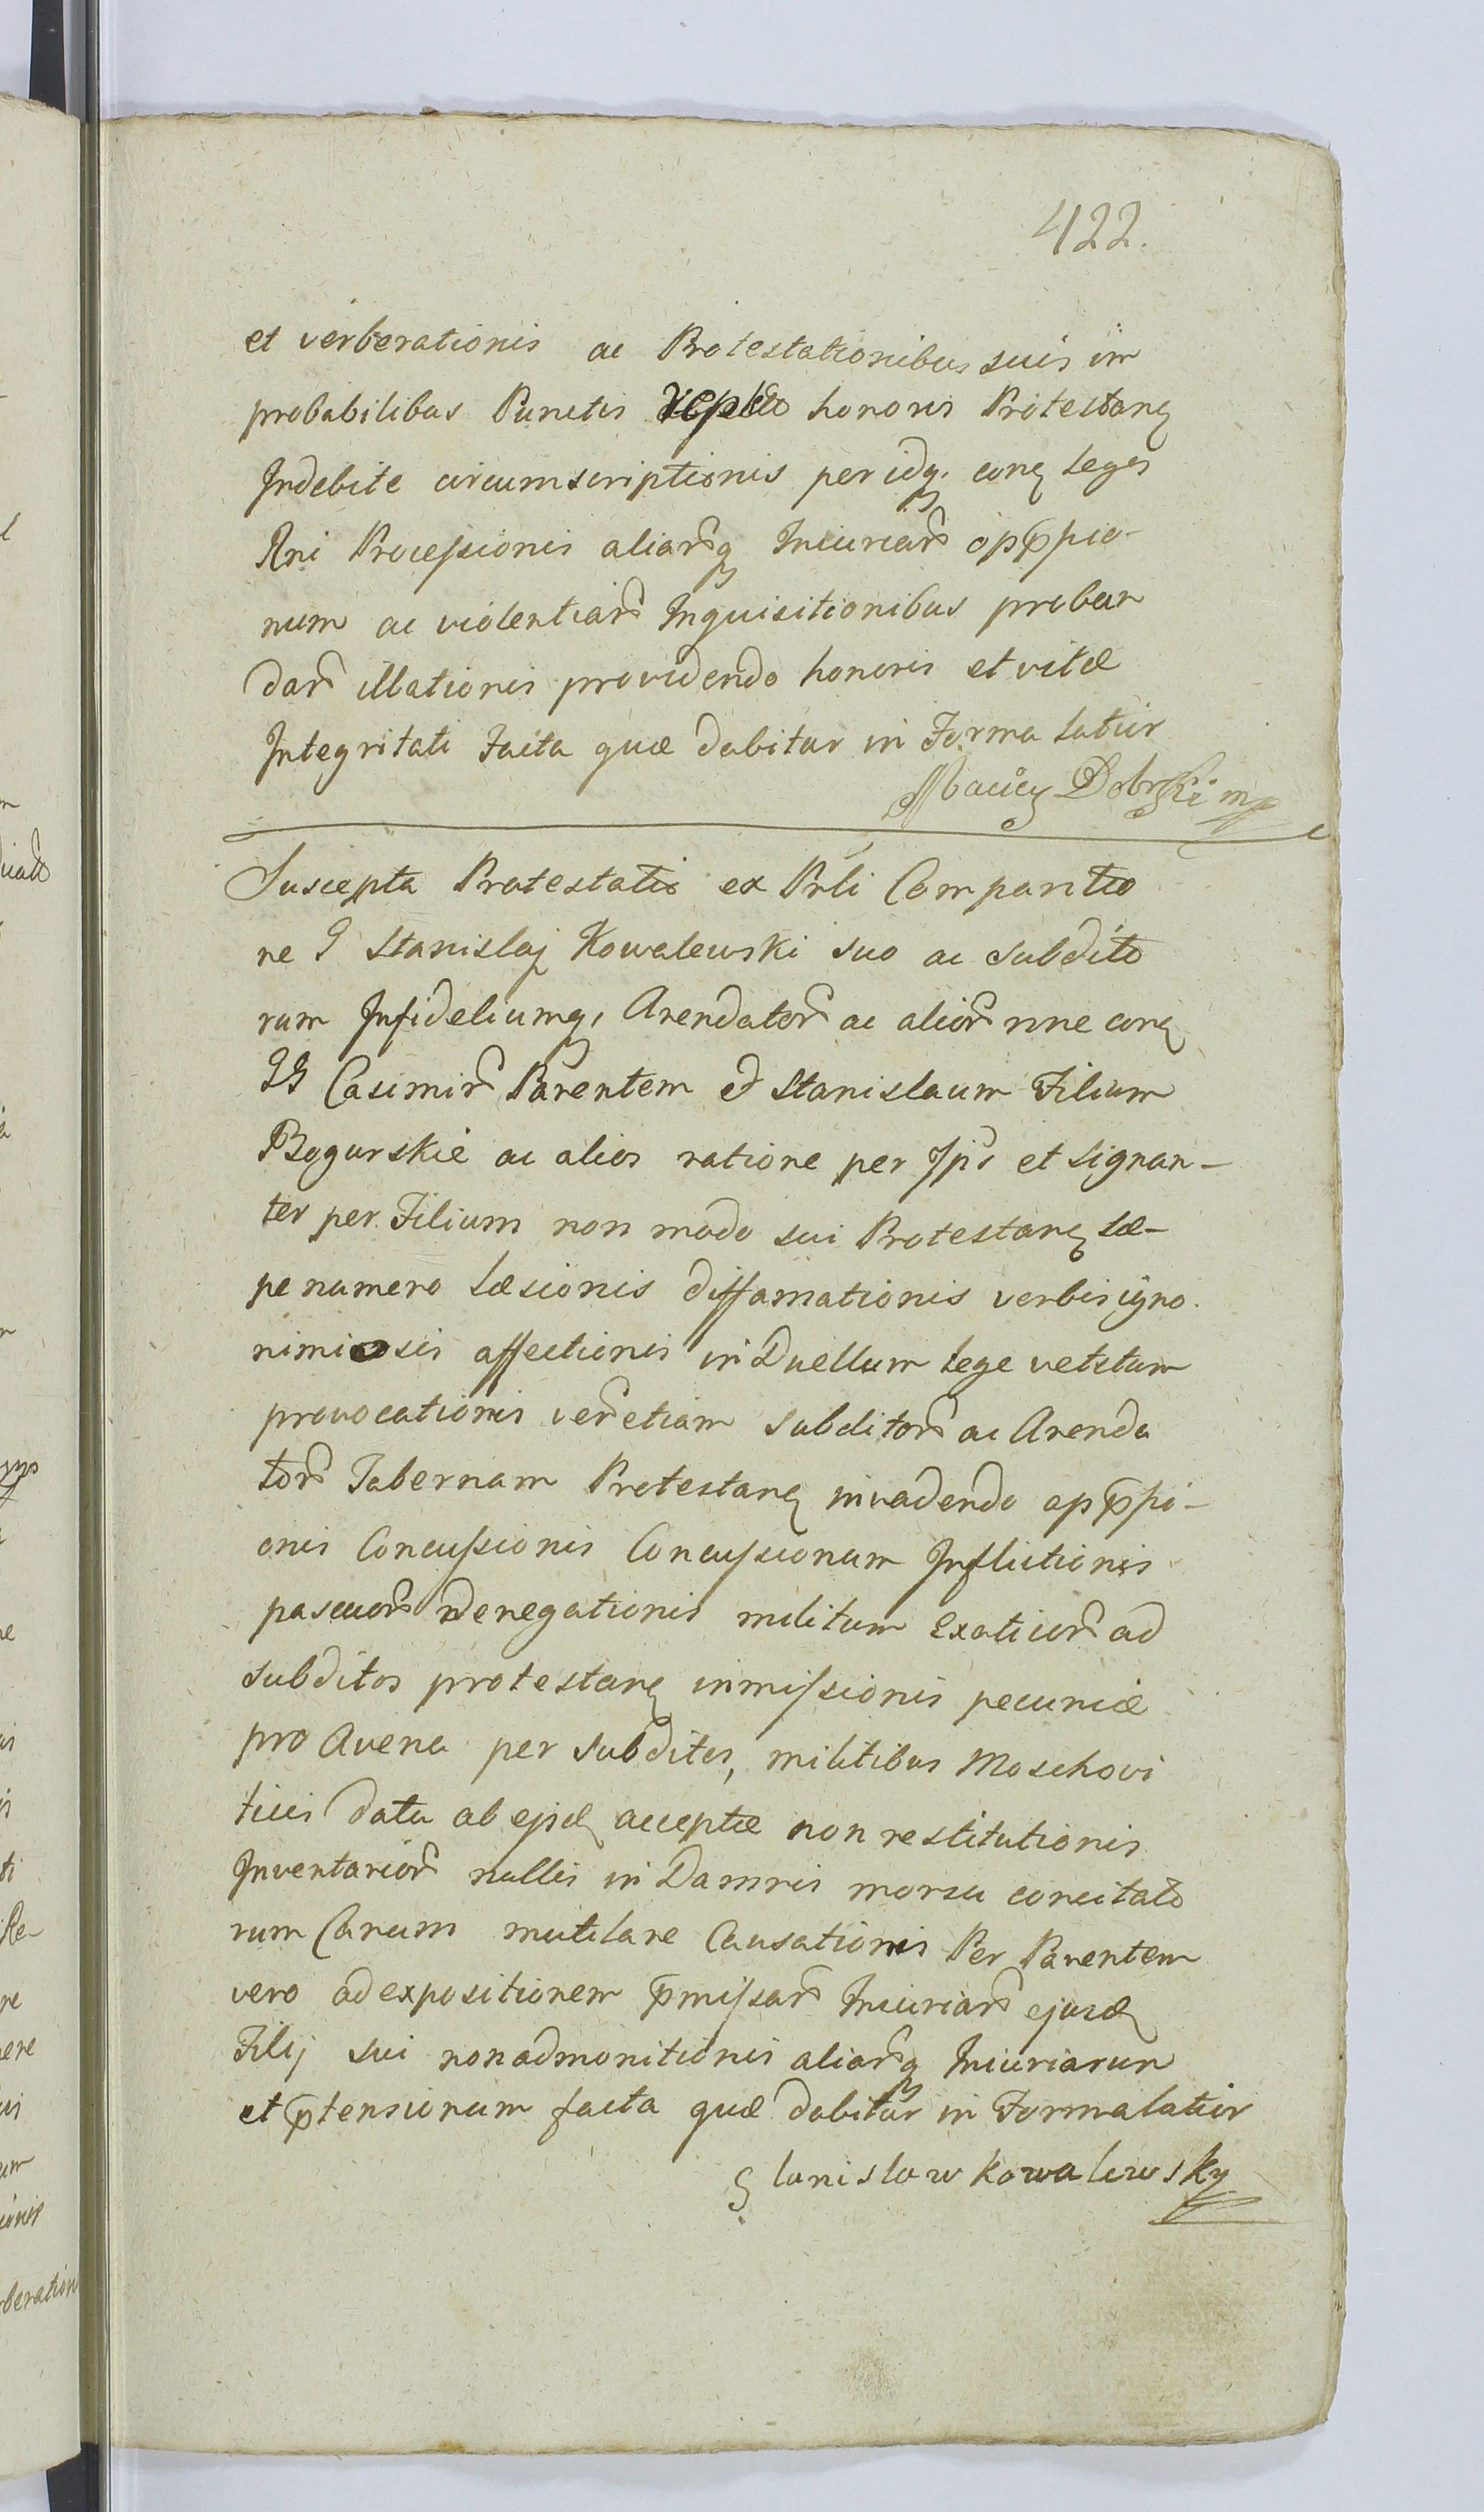 422.
et verberationis ac Protestationibus suis im
probabilibus Punctis honoris Protestanѯ
Indebite circumscriptionis per idq. conѯ Leges
Rni Processionis aliarq Iniuriar opp̄ssio-
num ac violentiar Inquisitionibus proban
dar illationis providendo honoris et vitæ
Integritati Facta quæ dabitur in Forma Latior
Maciey Dobrski mp
Suscepta Protestatio ex Prli Comparitio
ne G Stanislaj Kowalewski suo ac Subdito
rum Infideliumq, Arendator ac alior nne conѯ
GG Casimir Parentem et Stanislaum Filium
Bogurskie ac alios ratione per Ips et signan-
ter per Filium non modo sui Protestanѯ sæ-
pe numero Læsionis diffamationis verbis igno.
nimiosis affectionis in Duellum lege vetitum
provocationis ver etiam Subditor ac Arenda
tor Tabernam Protestanѯ invadendo opp̄ssi-
onis Concussionis Concussionum Inflictionis
pascuor denegationis militum ad
subditos protestanѯ immissionis pecuniæ
pro Avena per Subditos, militibus Moschovi
ticis data ab ejsdѯ acceptæ non restitutionis
Inventarior nullis in Damnis morsu concitato
rum Canum mutilare Causationis Per Parentem
vero ad expositionem p̄missar Iniuriar ejusdѯ
Filij sui non admonitionis aliarq Iniuriarum
et p̄tensionum facta quæ dabitur in Forma latior
Stanislaw Kowalewsky